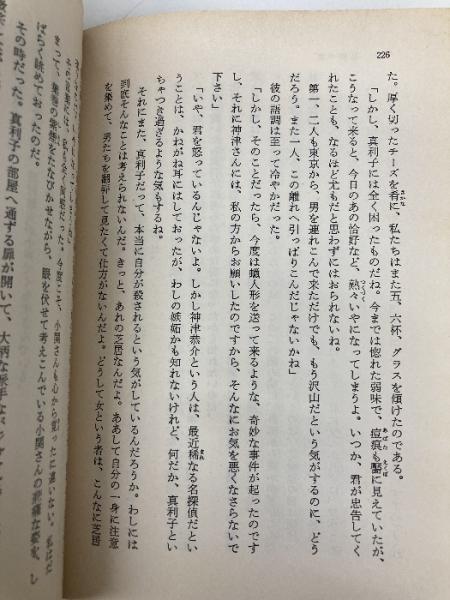 226
た。厚く切ったチーズを肴に、私たちはまた五、六杯、グラスを傾けたのである。
「しかし、真利子には全く困ったものだね。今までは惚れた弱味で、痘痕も靨に見えていたが、
こうなって来ると、今日のあの恰好など、熟々いやになってしまうよ。いつか、君が忠告してく
れたことも、なるほど尤もだと思わずにはおられないね。
第一、二人も東京から、男を連れこんで来ただけでも、もう沢山だという気がするのに、どう
だろう。また一人、この離れへ引っぱりこんだじゃないかね」
彼の語調は至って冷やかだった。
「しかし、そのことだったら、今度は蠟人形を送って来るような、奇妙な事件が起ったのです
し、それに神津さんには、私の方からお願いしたのですから、そんなにお気を悪くなさらないで
下さい」
「いや、君を怒っているんじゃないよ。しかし神津恭介という人は、最近稀なる名探偵だとい
うことは、かねがね耳にはしておったが、わしの嫉妬かも知れないけれど、何だか、真利子とい
ちゃつき過ぎるような気もするね。
それにまた、真利子だって、本当に自分が殺されるという気がしているんだろうか。わしには
到底そんなことは考えられないんだ。きっと、あれの芝居なんだよ。ああして自分の一身に注意
を集めて、男たちを翻弄して見たくて仕方がないんだよ。どうして女という者は、こんなに芝居
その言葉には、私も全く同感だった。今度こそ、小関さんも心から覚ったに違いない。私はだ
まって、葉巻の紫煙をたなびかせながら、眼を伏せて考えこんでいる小関さんの悲痛な姿を、し
ばらく眺めておったのだ。
その時だった。真利子の部屋へ通ずる扉が開いて、大柄な派手な